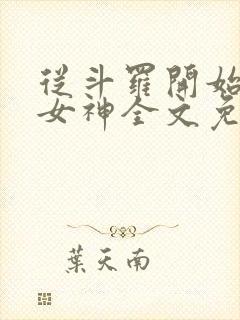 從斗羅開始
女神全文免
葉天南